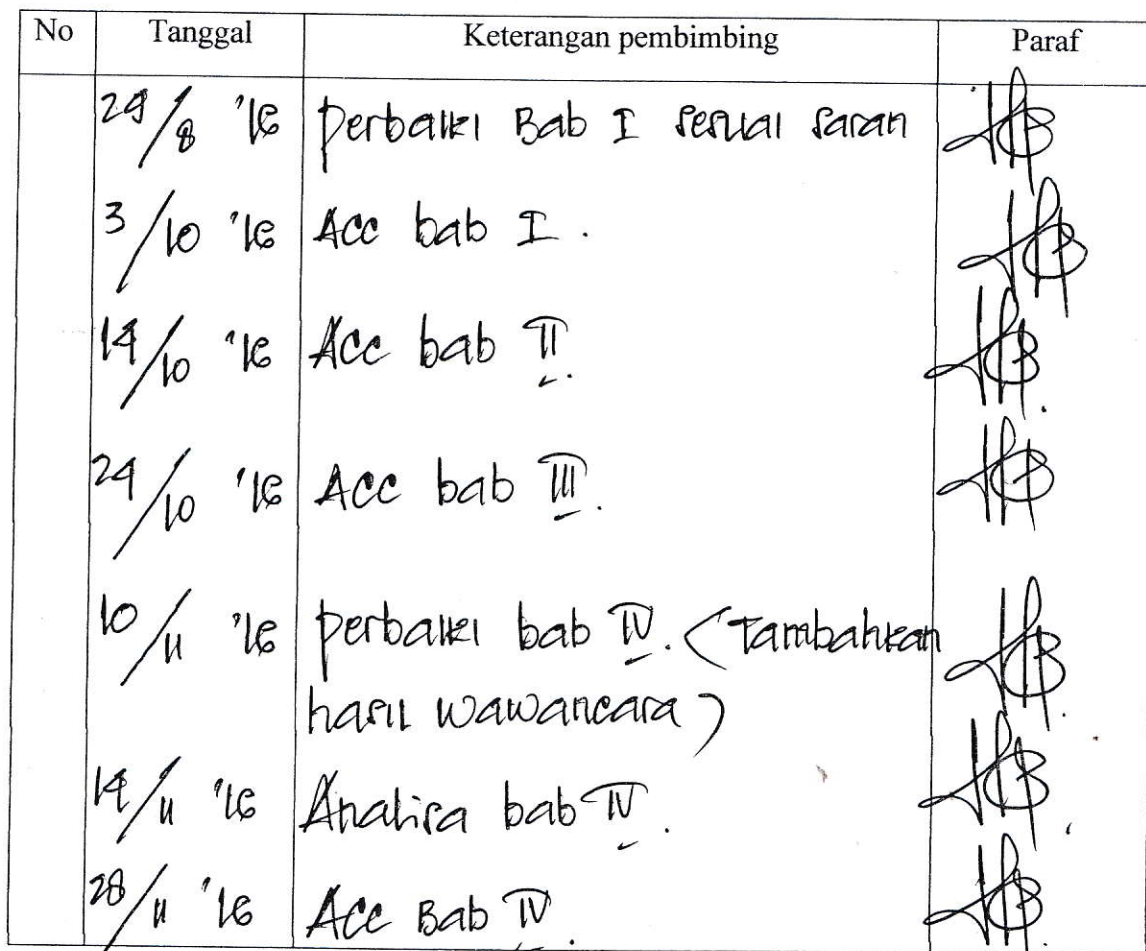 No Tanggal Keterangan pembimbing Paraf
29/8 '16 Perbaiki Bab I sesuai saran
3/10 '16 Acc bab I.
14/10 '16 Acc bab II.
24/10 '16 Acc bab III.
10/11 '16 perbaiki bab IV. (Tambahkan
hasil wawancara)
14/11 '16 Analisa bab IV.
28/11 '16 Acc Bab IV.